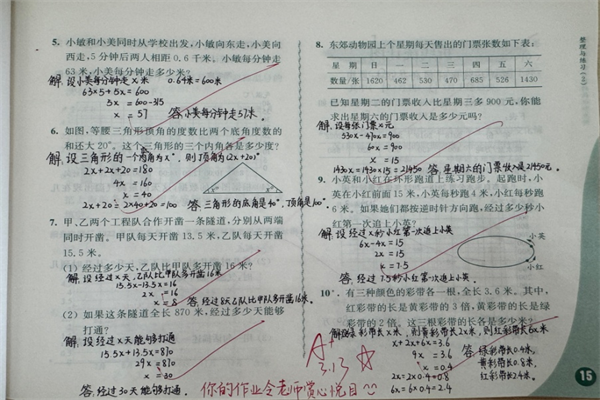 5. 小敏和小美同时从学校出发,小敏向东走,小美向
西走,5分钟后两人相距0.6千米。小敏每分钟走
63米,小美每分钟走多少米?
解:设小美每分钟走x米  0.6千米=600米
63×5+5x=600
5x=600-315
x=57
答:小美每分钟走57米.
6. 如图,等腰三角形顶角的度数比两个底角度数的
和还大20°。这个三角形的三个内角各是多少度?
解:设三角形的一个底角为x°,则顶角为(2x+20)°
2x+2x+20=180
4x=160
x=40
2x+20=2×40+20=100
答:三角形的底角是40°,顶角是100°.
7. 甲、乙两个工程队合作开凿一条隧道,分别从两端
同时开凿。甲队每天开凿13.5米,乙队每天开凿
15.5米。
(1) 经过多少天,乙队比甲队多开凿16米?
解:设经过x天,乙队比甲队多开凿16米
15.5x-13.5x=16
2x=16
x=8
答:经过8天乙队比甲队多开凿16米.
(2) 如果这条隧道全长870米,经过多少天能够
打通?
解:设经过x天能够打通
15.5x+13.5x=870
29x=870
x=30
答:经过30天能够打通.
8. 东郊动物园上个星期每天售出的门票张数如下表:
星期 日 一 二 三 四 五 六
数量/张 1620 462 530 470 685 526 1430
已知星期二的门票收入比星期三多900元,你能
求出星期六的门票收入是多少元吗?
解:设每张门票x元
530x-470x=900
60x=900
x=15
1430x=1430×15=21450
答:星期六的门票收入是21450元.
9. 小英和小红在环形跑道上练习跑步。起跑时,小
英在小红前面15米,小英每秒跑4米,小红每秒跑
6米。如果她们都按逆时针方向跑,经过多少秒小
红第一次追上小英?
解:设经过x秒小红第一次追上小英
6x-4x=15
2x=15
x=7.5
小英
小红
答:经过7.5秒小红第一次追上小英.
10. 有三种颜色的彩带各一根,全长3.6米。其中,
红彩带的长是黄彩带的3倍,黄彩带的长是绿
彩带的2倍。这三根彩带的长各是多少米?
解:设绿彩带长x米,则黄彩带长2x米,则红彩带长6x米
x+2x+6x=3.6
9x=3.6
x=0.4
2x=2×0.4=0.8
6x=6×0.4=2.4
答:绿彩带长0.4米,
黄彩带长0.8米,
红彩带长2.4米.
A+
3.13
你的作业令老师赏心悦目
整理与练习(2)
15